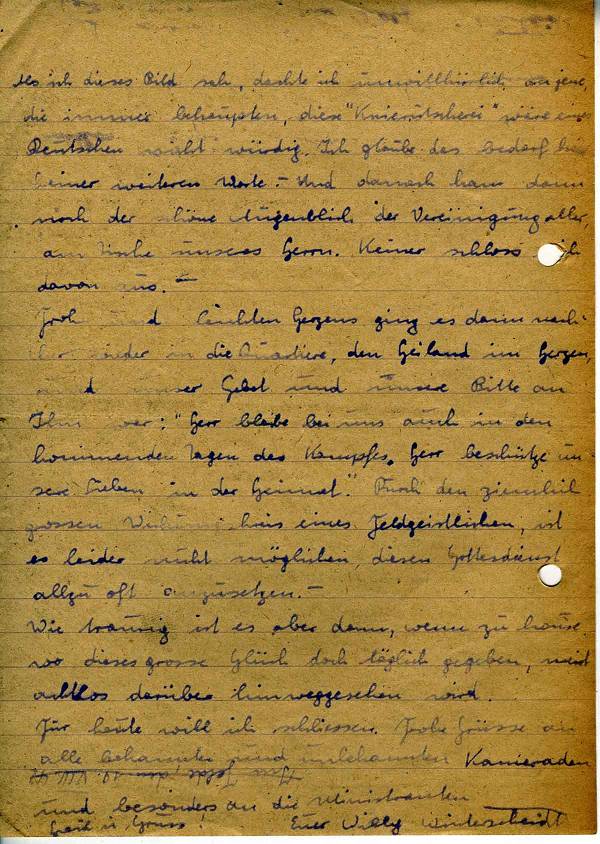 Als ich dieses Bild sah, dachte ich unwillkürlich an jene,
die immer behaupten, diese "Knierutscherei" wäre eines
Deutschen nicht würdig. Ich glaube das bedarf hier
keiner weiteren Worte. – Und danach kam dann
noch der schöne Augenblick der Vereinigung aller,
am Tische unseres Herrn. Keiner schloss sich
davon aus. –
Froh und leichten Herzens ging es dann nach-
her wieder in die Quartiere, den Heiland im Herzen,
und unser Gebet und unsere Bitte an
Ihn war: "Herr bleibe bei uns auch in den
kommenden Tagen des Kampfes. Herr beschütze un-
sere Lieben in der Heimat." Durch den ziemlich
grossen Wirkungskreis eines Feldgeistlichen, ist
es leider nicht möglichen, diesen Gottesdienst
allzu oft anzusetzen. –
Wie traurig ist es aber dann, wenn zu hause
wo dieses grosse Glück doch täglich gegeben, meist
achtlos darüber hinweggesehen wird.
Für heute will ich schliessen. Frohe Grüsse an
alle bekannten und unbekannten Kameraden
und besonders an die Ministranten
Euer Willy Winterscheidt